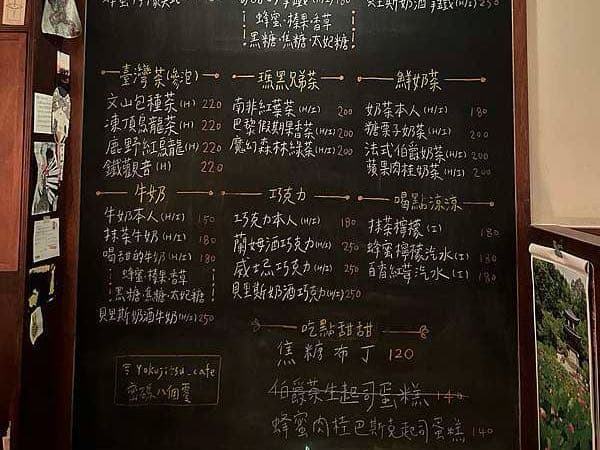 貝里斯奶酒拿鐵(H/I) 250
蜂蜜·榛果·香草
黑糖·焦糖·太妃糖
臺灣茶(參沱)
文山包種茶(H) 220
凍頂烏龍茶(H) 220
鹿野紅烏龍(H) 220
鐵觀音(H) 220
瑪黑兄弟茶
南非紅葉茶(H/I) 200
巴黎假期果香茶(H/I) 200
魔幻森林綠茶(H/I) 200
鮮奶茶
奶茶本人(H/I) 180
糖栗子奶茶(H/I) 200
法式伯爵奶茶(H/I) 200
蘋果肉桂奶茶(H/I) 200
牛奶
牛奶本人(H/I) 150
抹茶牛奶(H/I) 180
喝甜的牛奶(H/I) 180
蜂蜜·榛果·香草
黑糖·焦糖·太妃糖
貝里斯奶酒牛奶(H/I) 250
巧克力
巧克力本人(H/I) 180
蘭姆酒巧克力(H/I) 250
威士忌巧克力(H/I) 250
貝里斯奶酒巧克力(H/I) 250
喝點涼涼
抹茶檸檬(I) 180
蜂蜜檸檬汽水(I) 180
百香紅莓汽水(I) 180
吃點甜甜
焦糖布丁 120
伯爵茶生起司蛋糕 140
蜂蜜肉桂巴斯克起司蛋糕 140
Yokujitsu_cafe
密碼八個零